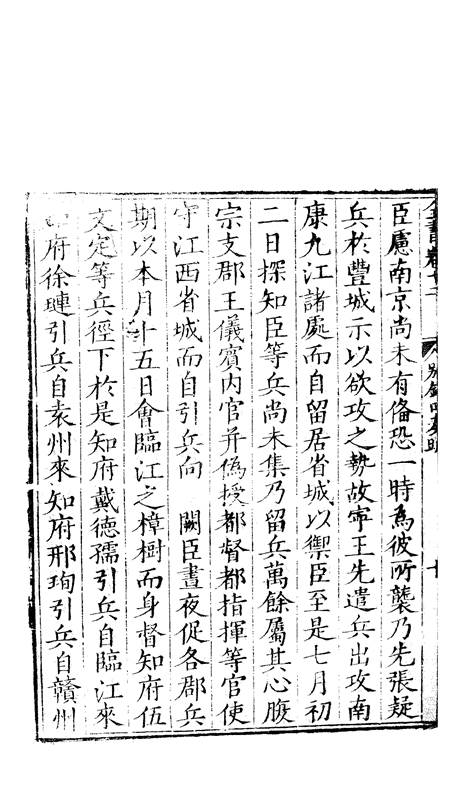 臣慮南京尚未有備恐一時為彼所襲乃先張疑
兵於豐城示以欲攻之勢故寧王先遣兵出攻南
康九江諸處而自留居省城以禦臣至是七月初
二日探知臣等兵尚未集乃留兵萬餘屬其心腹
宗支郡王儀賓内官并偽授都督都指揮等官使
守江西省城而自引兵向 闕臣晝夜促各郡兵
期以本月十五日會臨江之樟樹而身督知府伍
文定等兵徑下於是知府戴德孺引兵自臨江來
府徐璉引兵自袁州來知府邢珣引兵自贛州